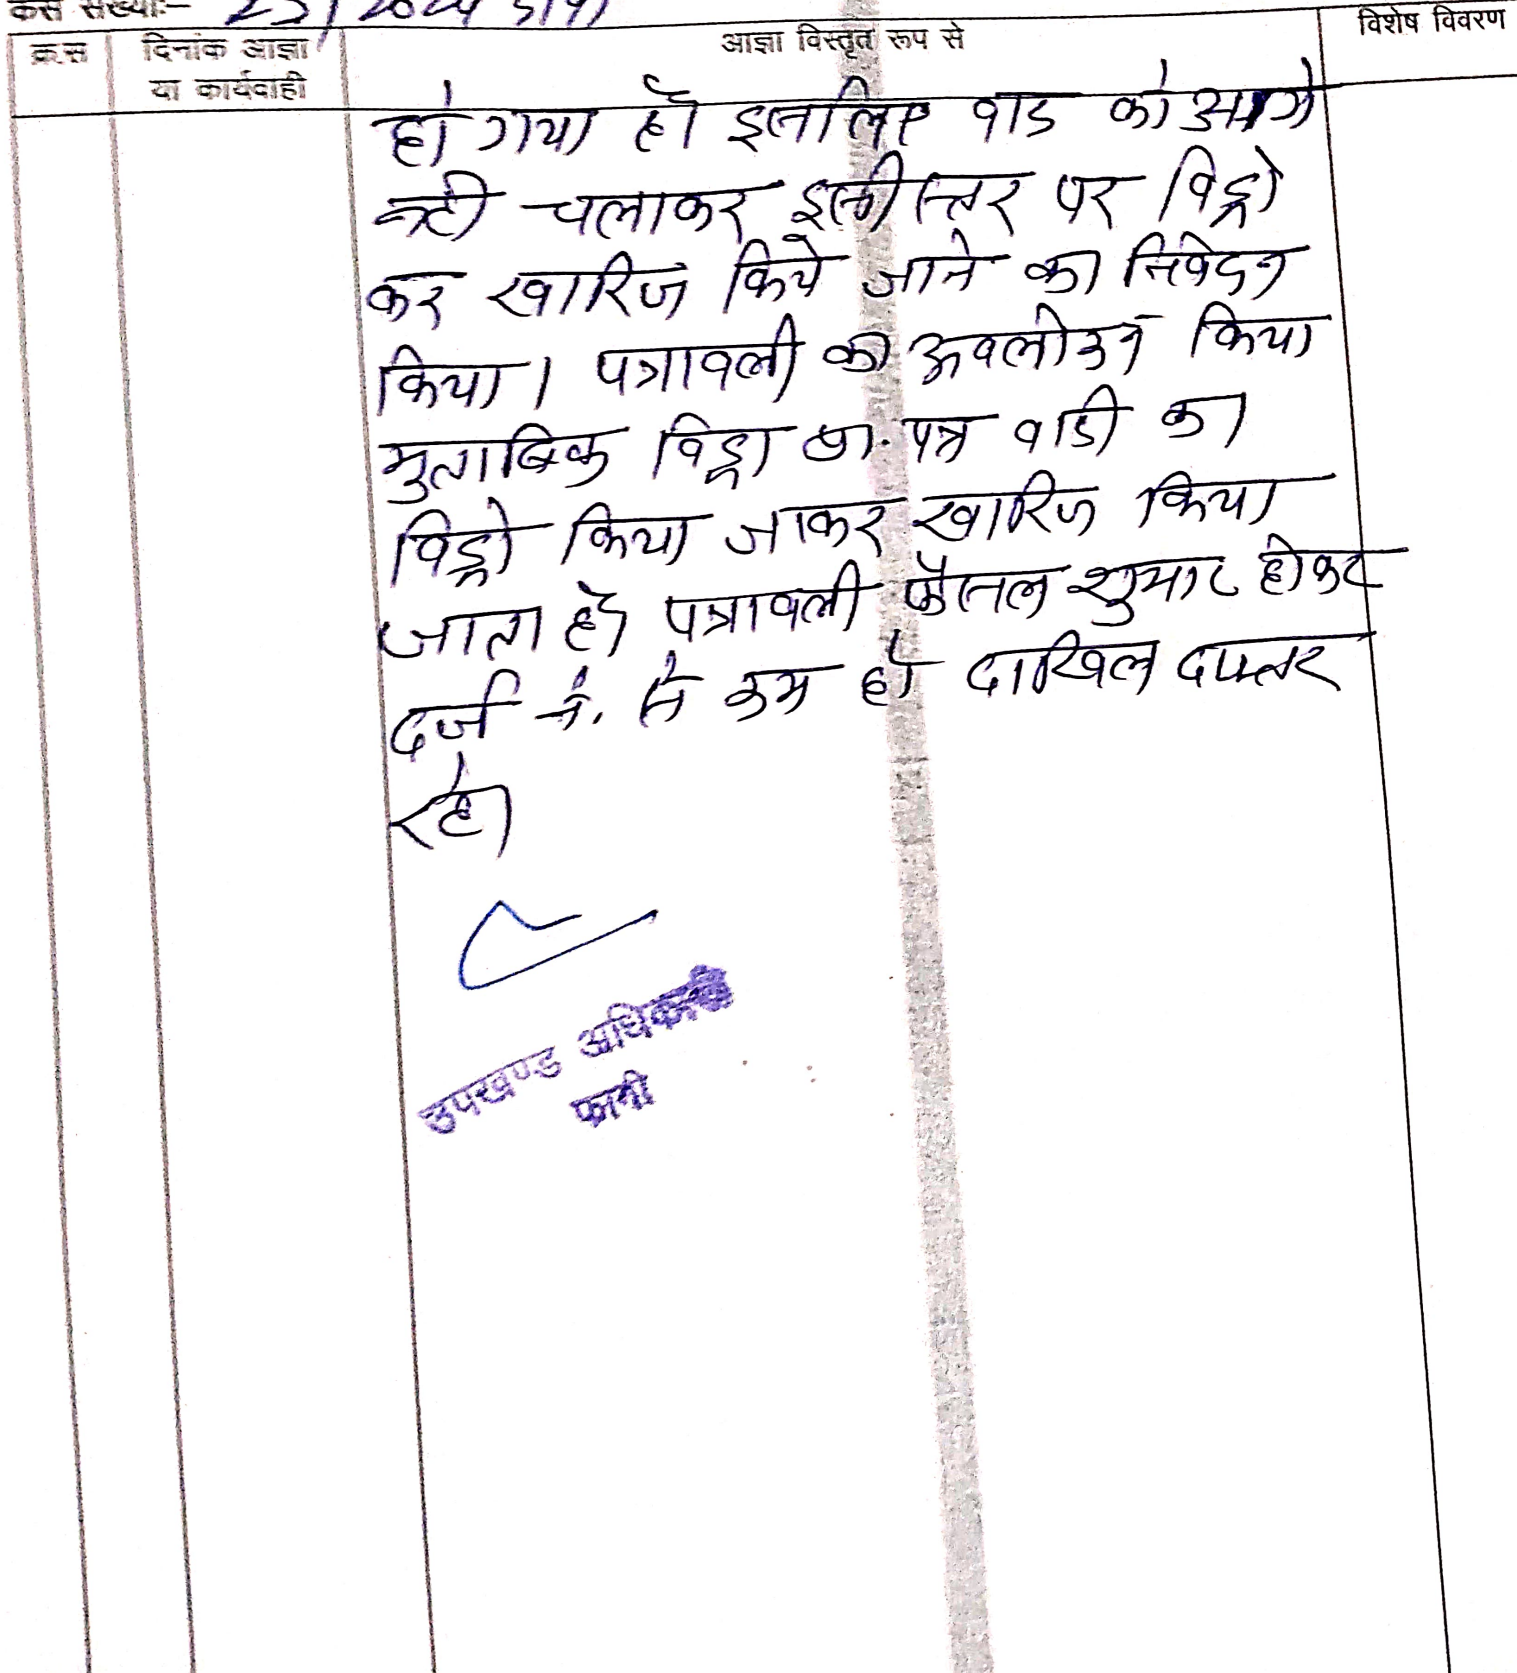 केस संख्याः- 2024
क्र.स दिनांक आज्ञा या कार्यवाही आज्ञा विस्तृत रूप से विशेष विवरण
हो गया है। इसलिए वाद को आगे
नही चलाकर इसी स्तर पर विड्रो
कर खारिज किये जाने का निवेदन
किया। पत्रावली का अवलोकन किया
मुताबिक विड्रा प्रा. पत्र वादी का
विड्रो किया जाकर खारिज किया
जाता है। पत्रावली फैसल शुमार होकर
दर्ज नं. से कम हो दाखिल दफ्तर
रहे।
उपखण्ड अधिकारी
फागी